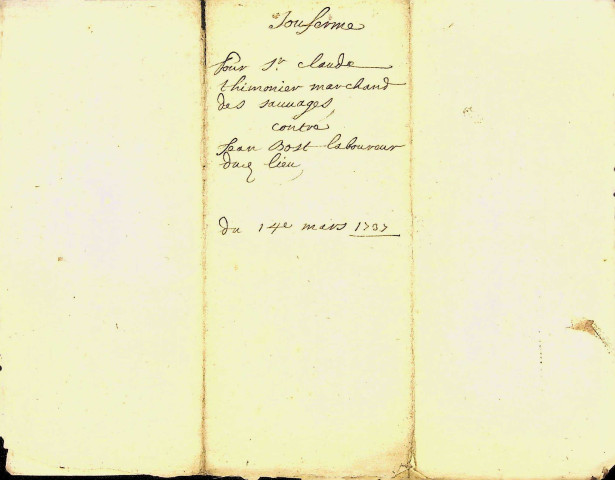 Souferme
Pour Sr. claude
thimonier marchand
des sauvages,
contre
Jean Bost laboureur
dud lieu,
du 14e mars 1737